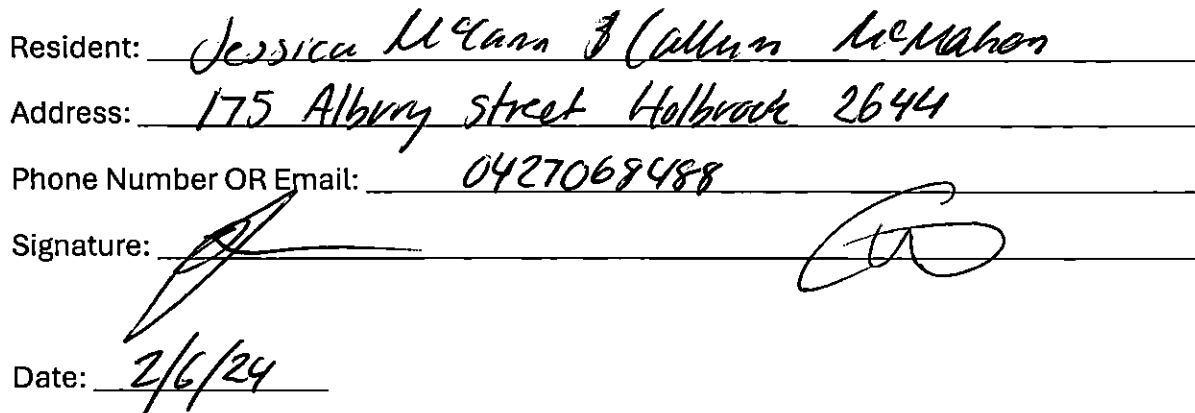 Resident: Jessica McCann & Callum McMahon
Address: 175 Albury Street Holbrook 2644
Phone Number OR Email: 0427068488
Signature:
Date: 2/6/24